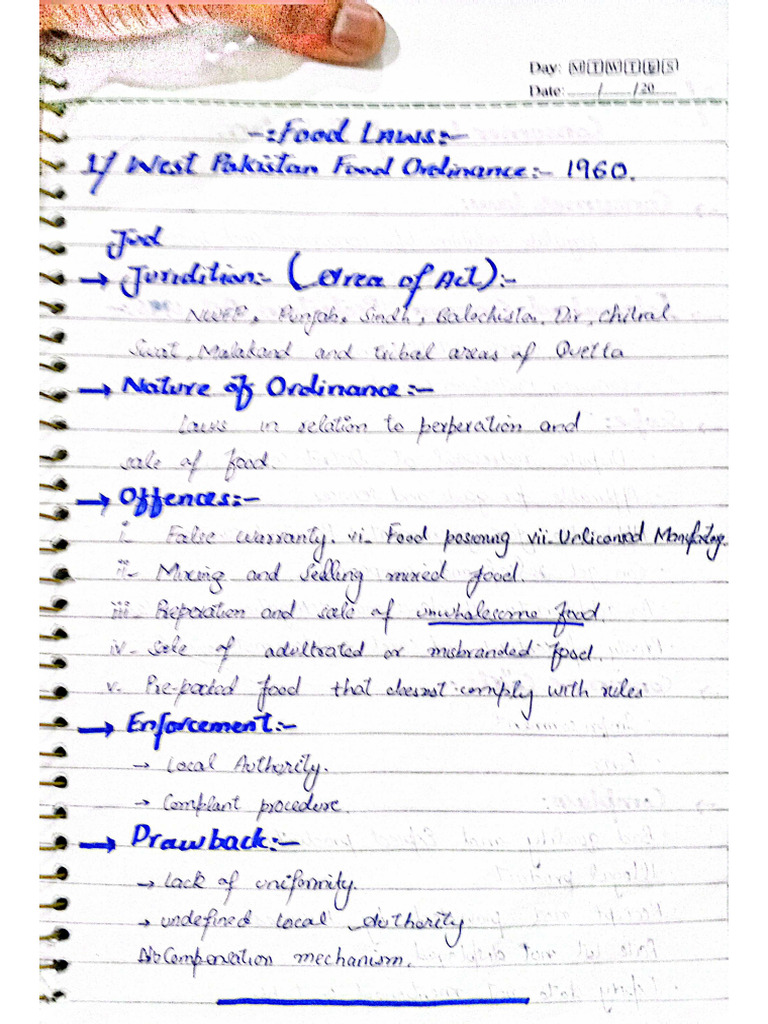 Day: M T W T F S
Date: ___/___/20___
-:Food Laws:-
1/ West Pakistan Food Ordinance:- 1960.
Jud
→ Juridition:- (Area of Act):-
NWFP, Punjab, Sindh, Balochista, Dir, chitral
Swat, Malakand and tribal areas of Quetta
→ Nature of Ordinance:-
Laws in relation to perperation and
sale of food.
→ Offences:-
i. False warranty. vi- Food posioning vii- Unlicensed Manufactage.
ii- Mixing and Selling mixed food.
iii- Preperation and sale of unwholesome food.
iv- Sale of adultrated or misbranded food.
v. Pre-packed food that doesnot comply with rules
→ Enforcement:-
→ Local Authority.
→ Complant procedure.
→ Drawback:-
→ Lack of uniformity.
→ undefined local Authority
No Compensation mechanism.